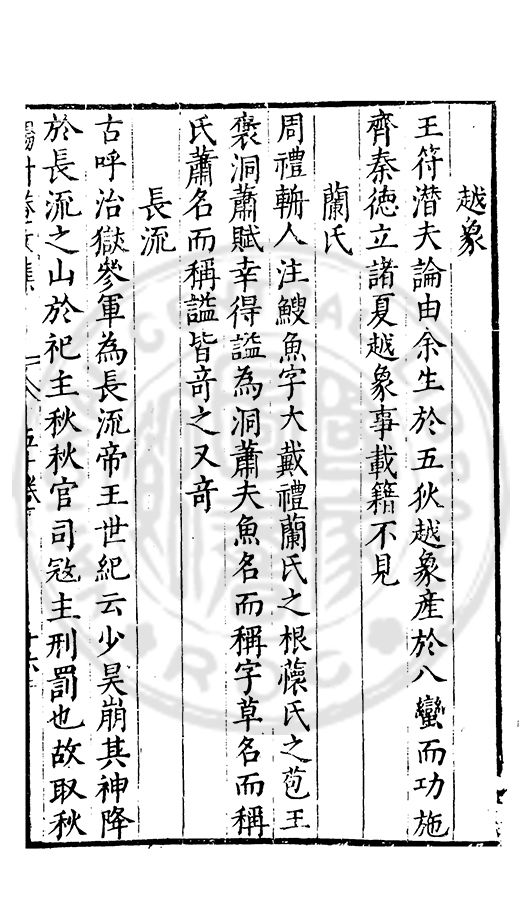 越象
王符潛夫論由余生於五狄越象產於八蠻而功施
齊秦德立諸夏越象事載籍不見
蘭氏
周禮輈人注鰻魚字大戴禮蘭氏之根蘹氏之苞王
褒洞蕭賦幸得謚為洞蕭夫魚名而稱字草名而稱
氏蕭名而稱謚皆竒之又竒
長流
古呼治獄參軍為長流帝王世紀云少昊崩其神降
於長流之山於祀主秋秋官司寇主刑罰也故取秋